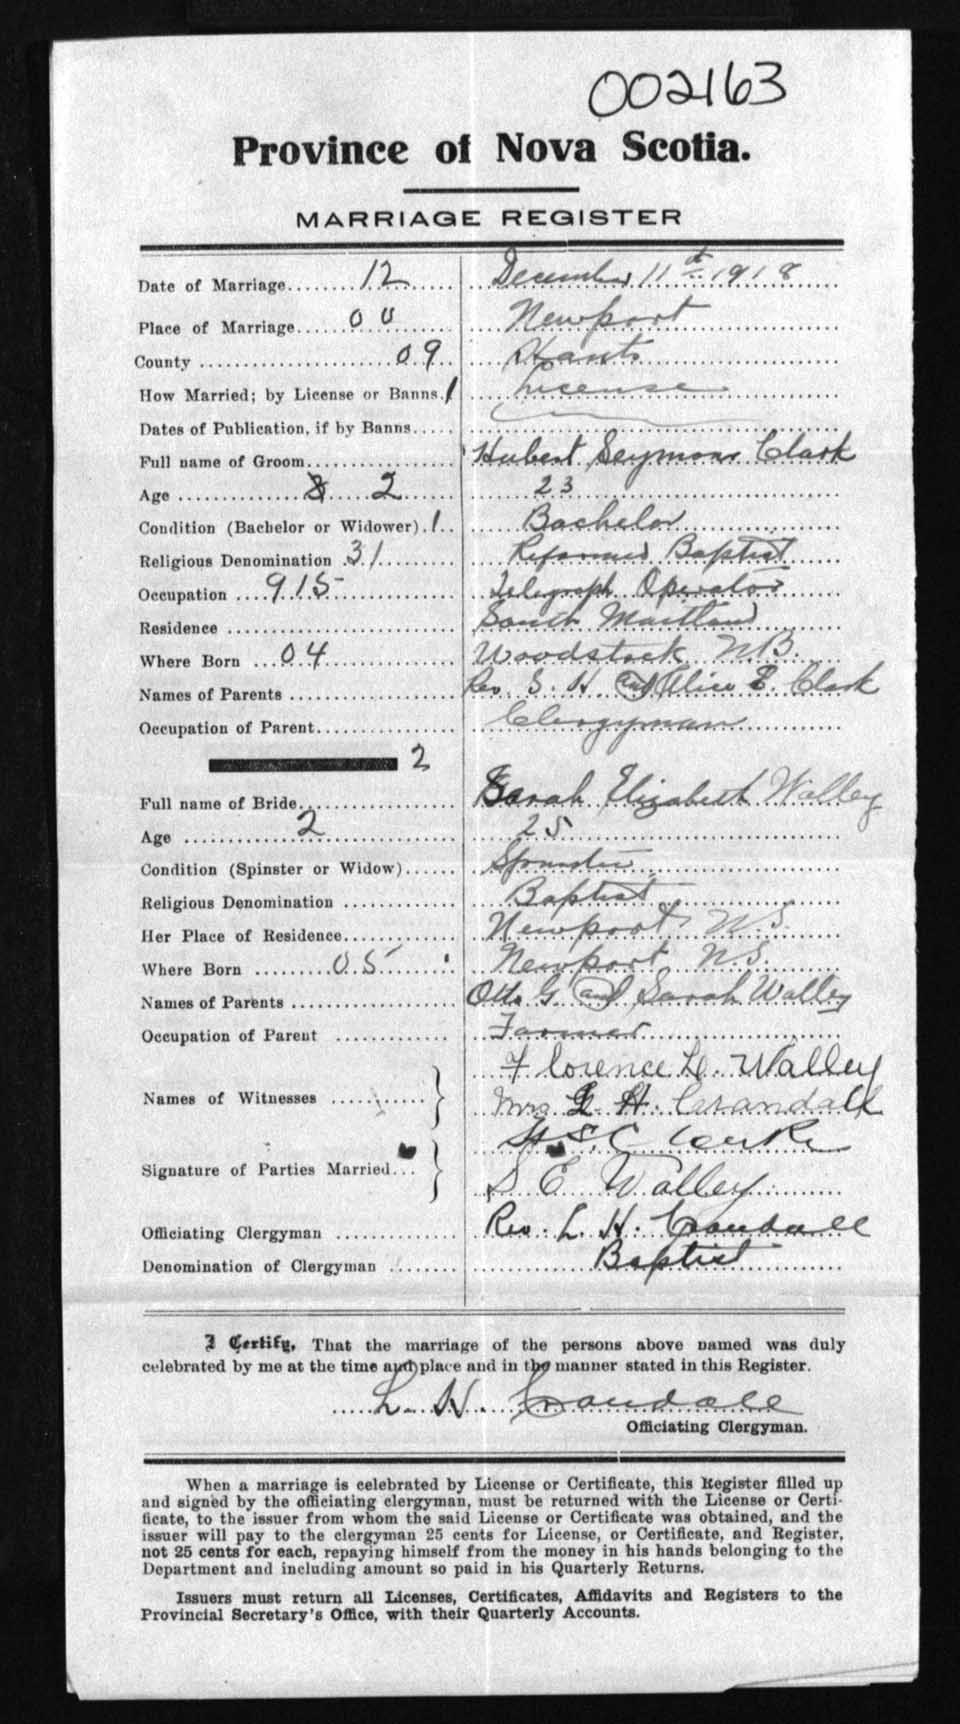 002163
Province of Nova Scotia.
MARRIAGE REGISTER
Date of Marriage 12 December 11th 1918
Place of Marriage 00 Newport
County 09 Hants
How Married; by License or Banns. 1 License
Dates of Publication, if by Banns
Full name of Groom Hubert Seymour Clark
Age 8 2 23
Condition (Bachelor or Widower) 1 Bachelor
Religious Denomination 31 Reformed Baptist
Occupation 915 Telegraph Operator
Residence South Maitland
Where Born 04 Woodstock N.B.
Names of Parents Rev. S. H. and Alice E. Clark
Occupation of Parent Clergyman
2
Full name of Bride Sarah Elizabeth Walley
Age 2 25
Condition (Spinster or Widow) Spinster
Religious Denomination Baptist
Her Place of Residence Newport N.S.
Where Born 05 Newport N.S.
Names of Parents Otto G. and Sarah Walley
Occupation of Parent Farmer
Florence L. Walley
Names of Witnesses Mrs L. H. Crandall
H S Clarke
Signature of Parties Married
S E Walley
Officiating Clergyman Rev. L. H. Crandall
Denomination of Clergyman Baptist
I Certify, That the marriage of the persons above named was duly
celebrated by me at the time and place and in the manner stated in this Register.
L. H. Crandall
Officiating Clergyman.
When a marriage is celebrated by License or Certificate, this Register filled up
and signed by the officiating clergyman, must be returned with the License or Certi-
ficate, to the issuer from whom the said License or Certificate was obtained, and the
issuer will pay to the clergyman 25 cents for License, or Certificate, and Register,
not 25 cents for each, repaying himself from the money in his hands belonging to the
Department and including amount so paid in his Quarterly Returns.
Issuers must return all Licenses, Certificates, Affidavits and Registers to the
Provincial Secretary's Office, with their Quarterly Accounts.